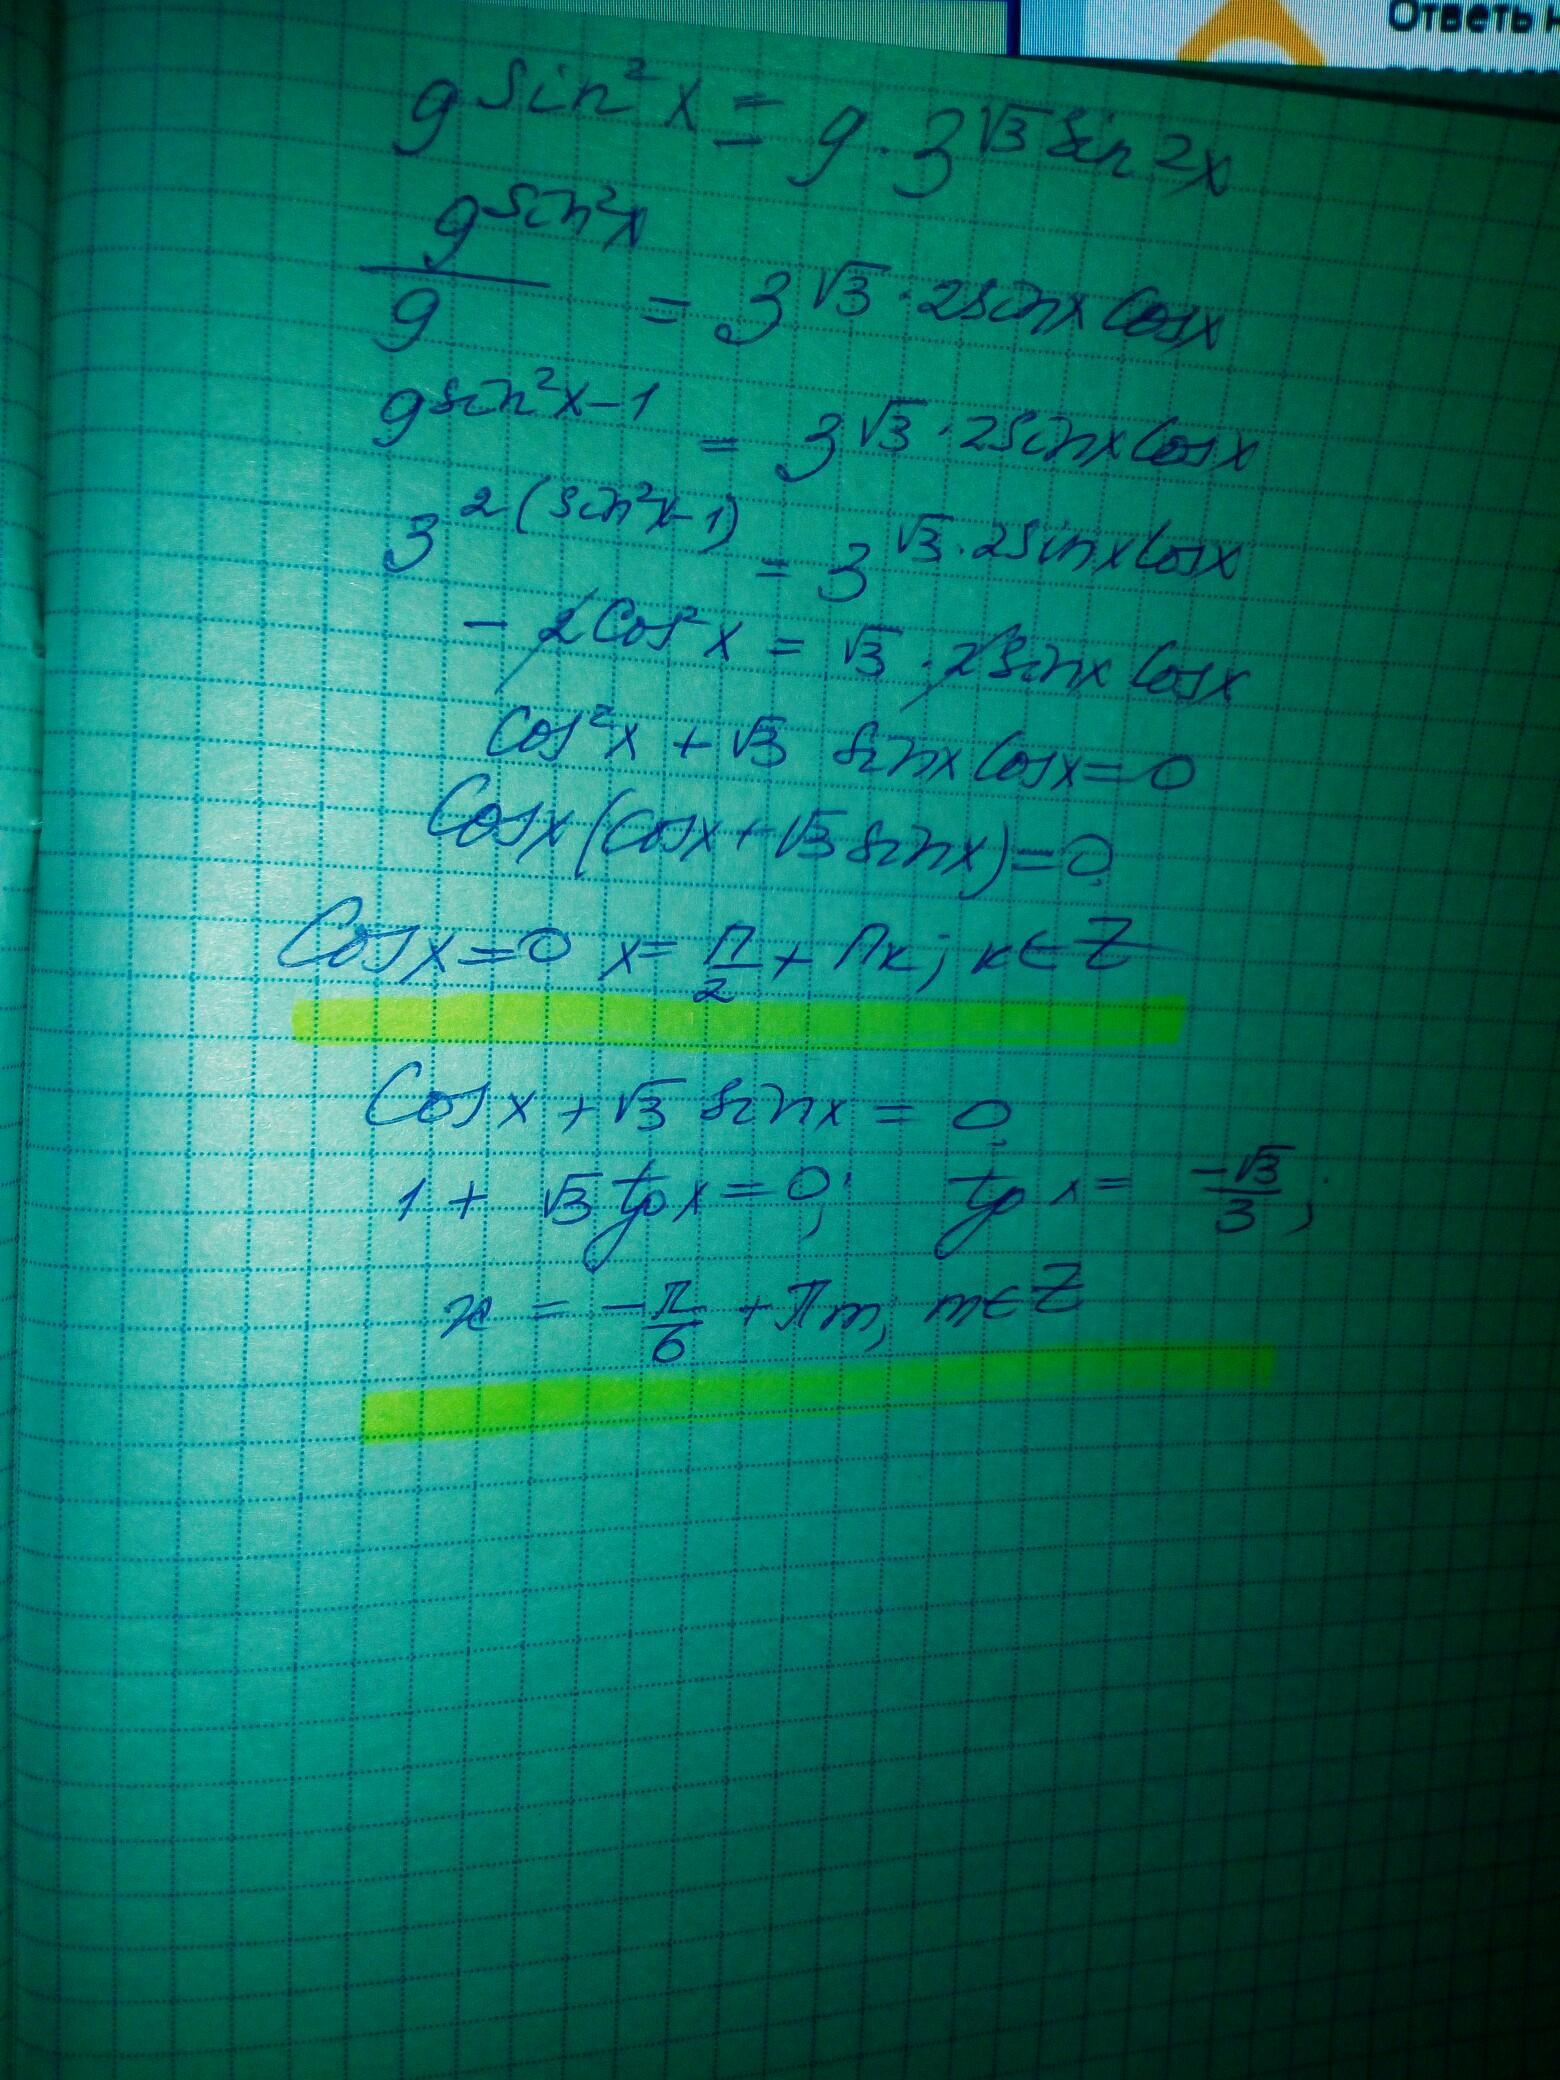 Ответь н
9^sin²x = 9·3^√3 sin 2x
9^sin²x / 9 = 3^√3·2sinx cosx
9^sin²x-1 = 3^√3·2sinx cosx
3^2(sin²x-1) = 3^√3·2sinx cosx
-2cos²x = √3·2sinx cosx
cos²x + √3 sinx cosx=0
Cosx(cosx+√3 sinx)=0
Cosx=0 x= π/2 + πk; k∈Z
Cosx+√3 sinx = 0
1+ √3 tgx=0; tg x= -√3/3;
x = -π/6 + πm, m∈Z